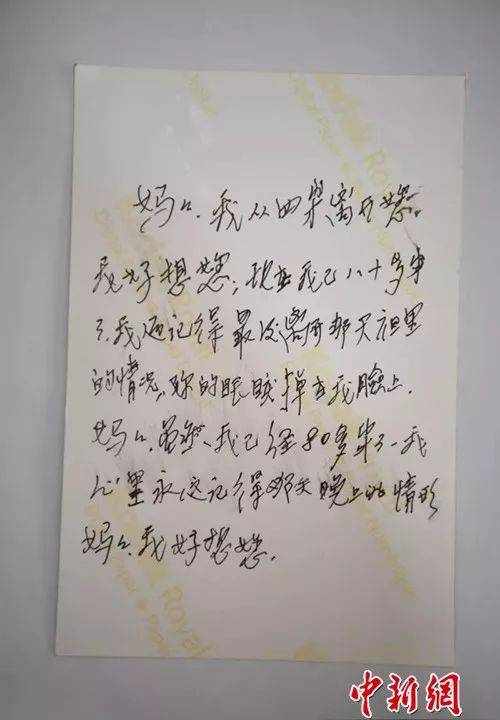 妈々.我从四 离开您。
我好想您,现在我已八十多岁
了.我还记得最后离开那天 里
的情况,你的眼 掉在我臉上.
妈々.虽然、我已经80多岁了、我
心里永远记得那天晚上的情形
妈々.我好想您.
中新網